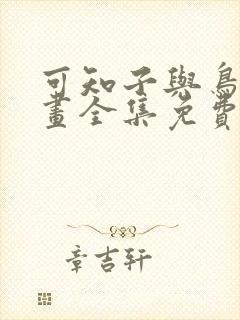 可知子與鳥
畫全集免費
章吉轩